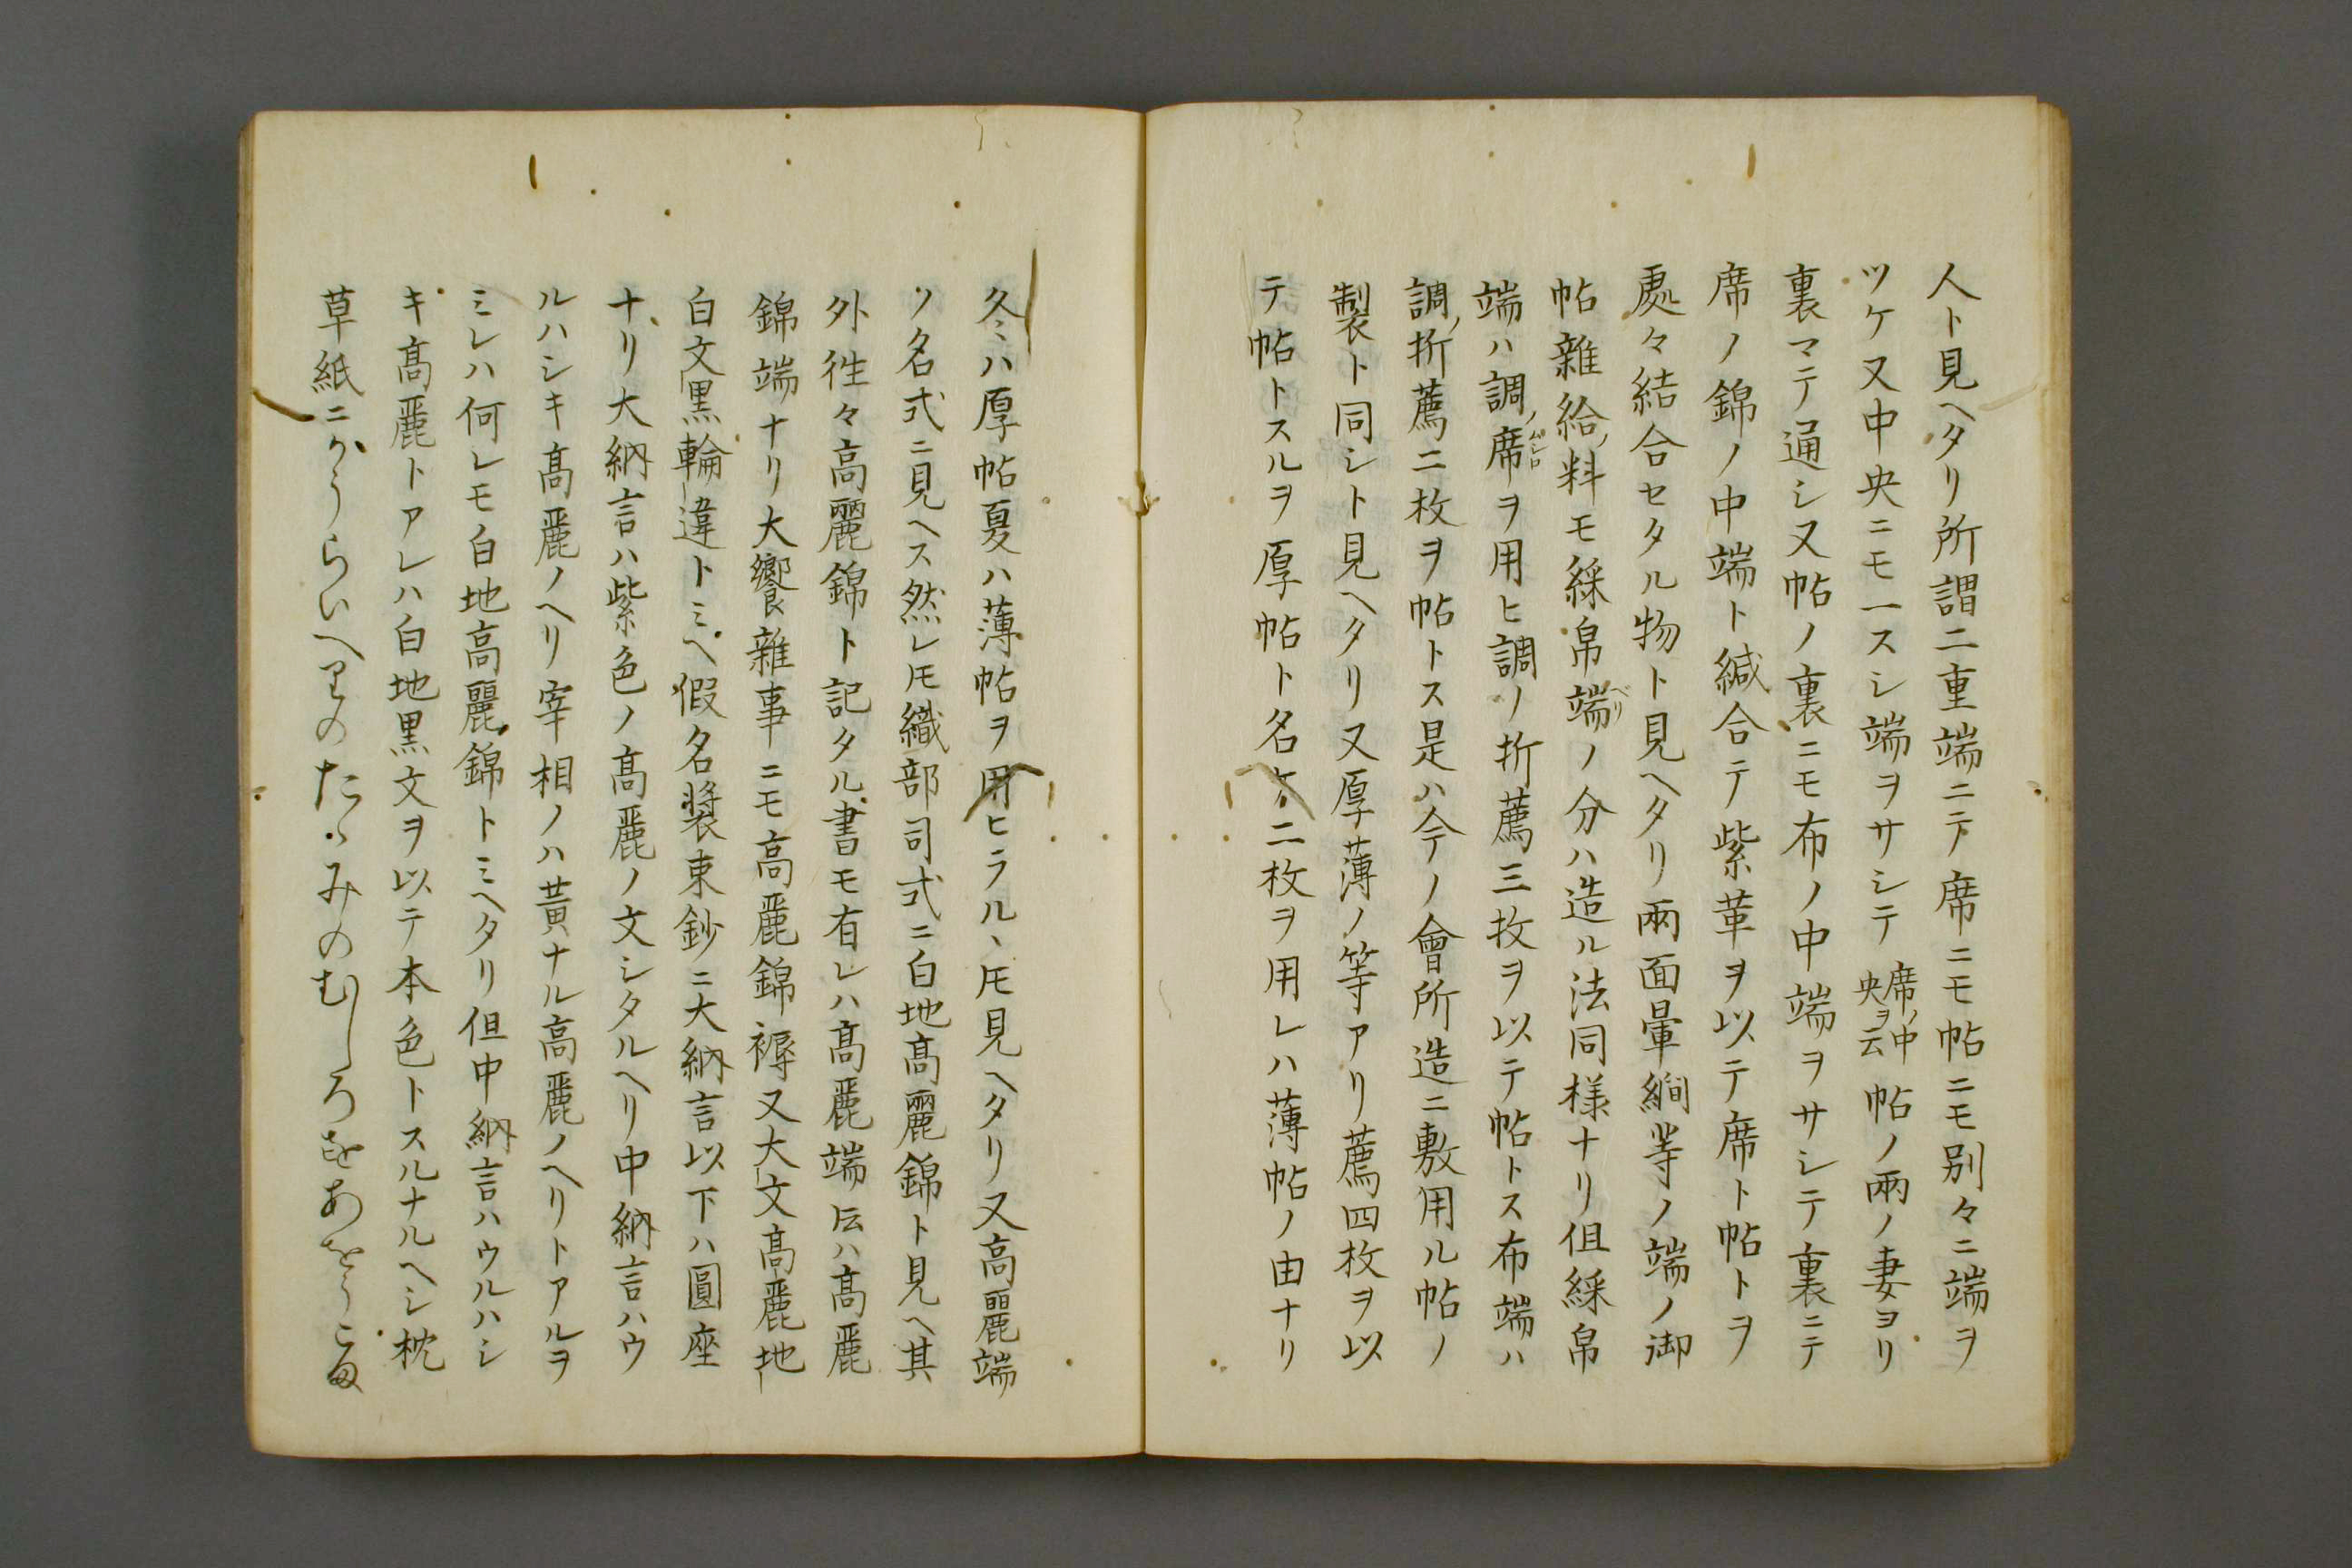 人ト見ヘタリ所謂二重端ニテ席ニモ帖ニモ別々ニ端ヲ
ツケ又中央ニモ一スシ端ヲサシテ席ノ中央ヲ云帖ノ兩ノ妻ヨリ
裏マテ通シ又帖ノ裏ニモ布ノ中端ヲサシテ裏ニテ
席ノ錦ノ中端ト縅合テ紫革ヲ以テ席ト帖トヲ
處々結合セタル物ト見ヘタリ兩面暈繝等ノ端ノ御
帖雜給ノ料モ綵帛端ベリノ分ハ造ル法同様ナリ但綵帛
端ハ調ノ席ムシロヲ用ヒ調ノ折薦三枚ヲ以テ帖トス布端ハ
調ノ折薦二枚ヲ帖トス是ハ今ノ會所造ニ敷用ル帖ノ
製ト同シト見ヘタリ又厚薄ノ等アリ薦四枚ヲ以
テ帖トスルヲ厚帖ト名ケ二枚ヲ用レハ薄帖ノ由ナリ
冬ハ厚帖夏ハ薄帖ヲ用ヒラルヽ𪜈見ヘタリ又高麗端
ノ名式ニ見ヘス然レ𪜈織部司式ニ白地高麗錦ト見ヘ其
外徃々高麗錦ト記タル書モ有レハ高麗端ハ高麗
錦端ナリ大饗雜事ニモ高麗錦褥又大文高麗地
白文黒輪違トミヘ假名装束鈔ニ大納言以下ハ圓座
ナリ大納言ハ紫色ノ高麗ノ文シタルヘリ中納言ハウ
ルハシキ高麗ノヘリ宰相ノハ黄ナル高麗ノヘリトアルヲ
ミレハ何レモ白地高麗錦トミヘタリ但中納言ハウルハシ
キ高麗トアレハ白地黒文ヲ以テ本色トスルナルヘシ枕
草紙ニかうらいへりのたゝみのむしろをあをうこま